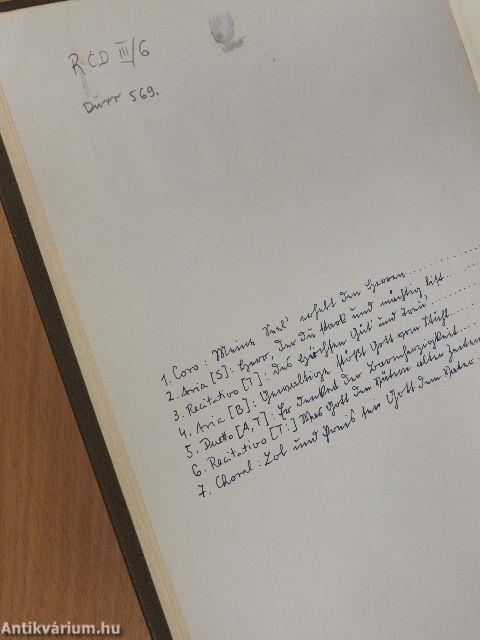 RCD III/6
Dürr 569.
1. Coro: Meine Seel' erhebt den Herren............
2. Aria [S]: Herr, der du stark und mächtig bist......
3. Recitativo [T]: Des Höchsten Güt' und Treu,........
4. Aria [B]: Gewaltige stößt Gott vom Stuhl..........
5. Duetto [A,T]: Er denket der Barmherzigkeit........
6. Recitativo [T:] Was Gott den Vätern alter Zeiten
7. Choral: Lob und Preis sei Gott dem Vater..
Antikvárium.hu